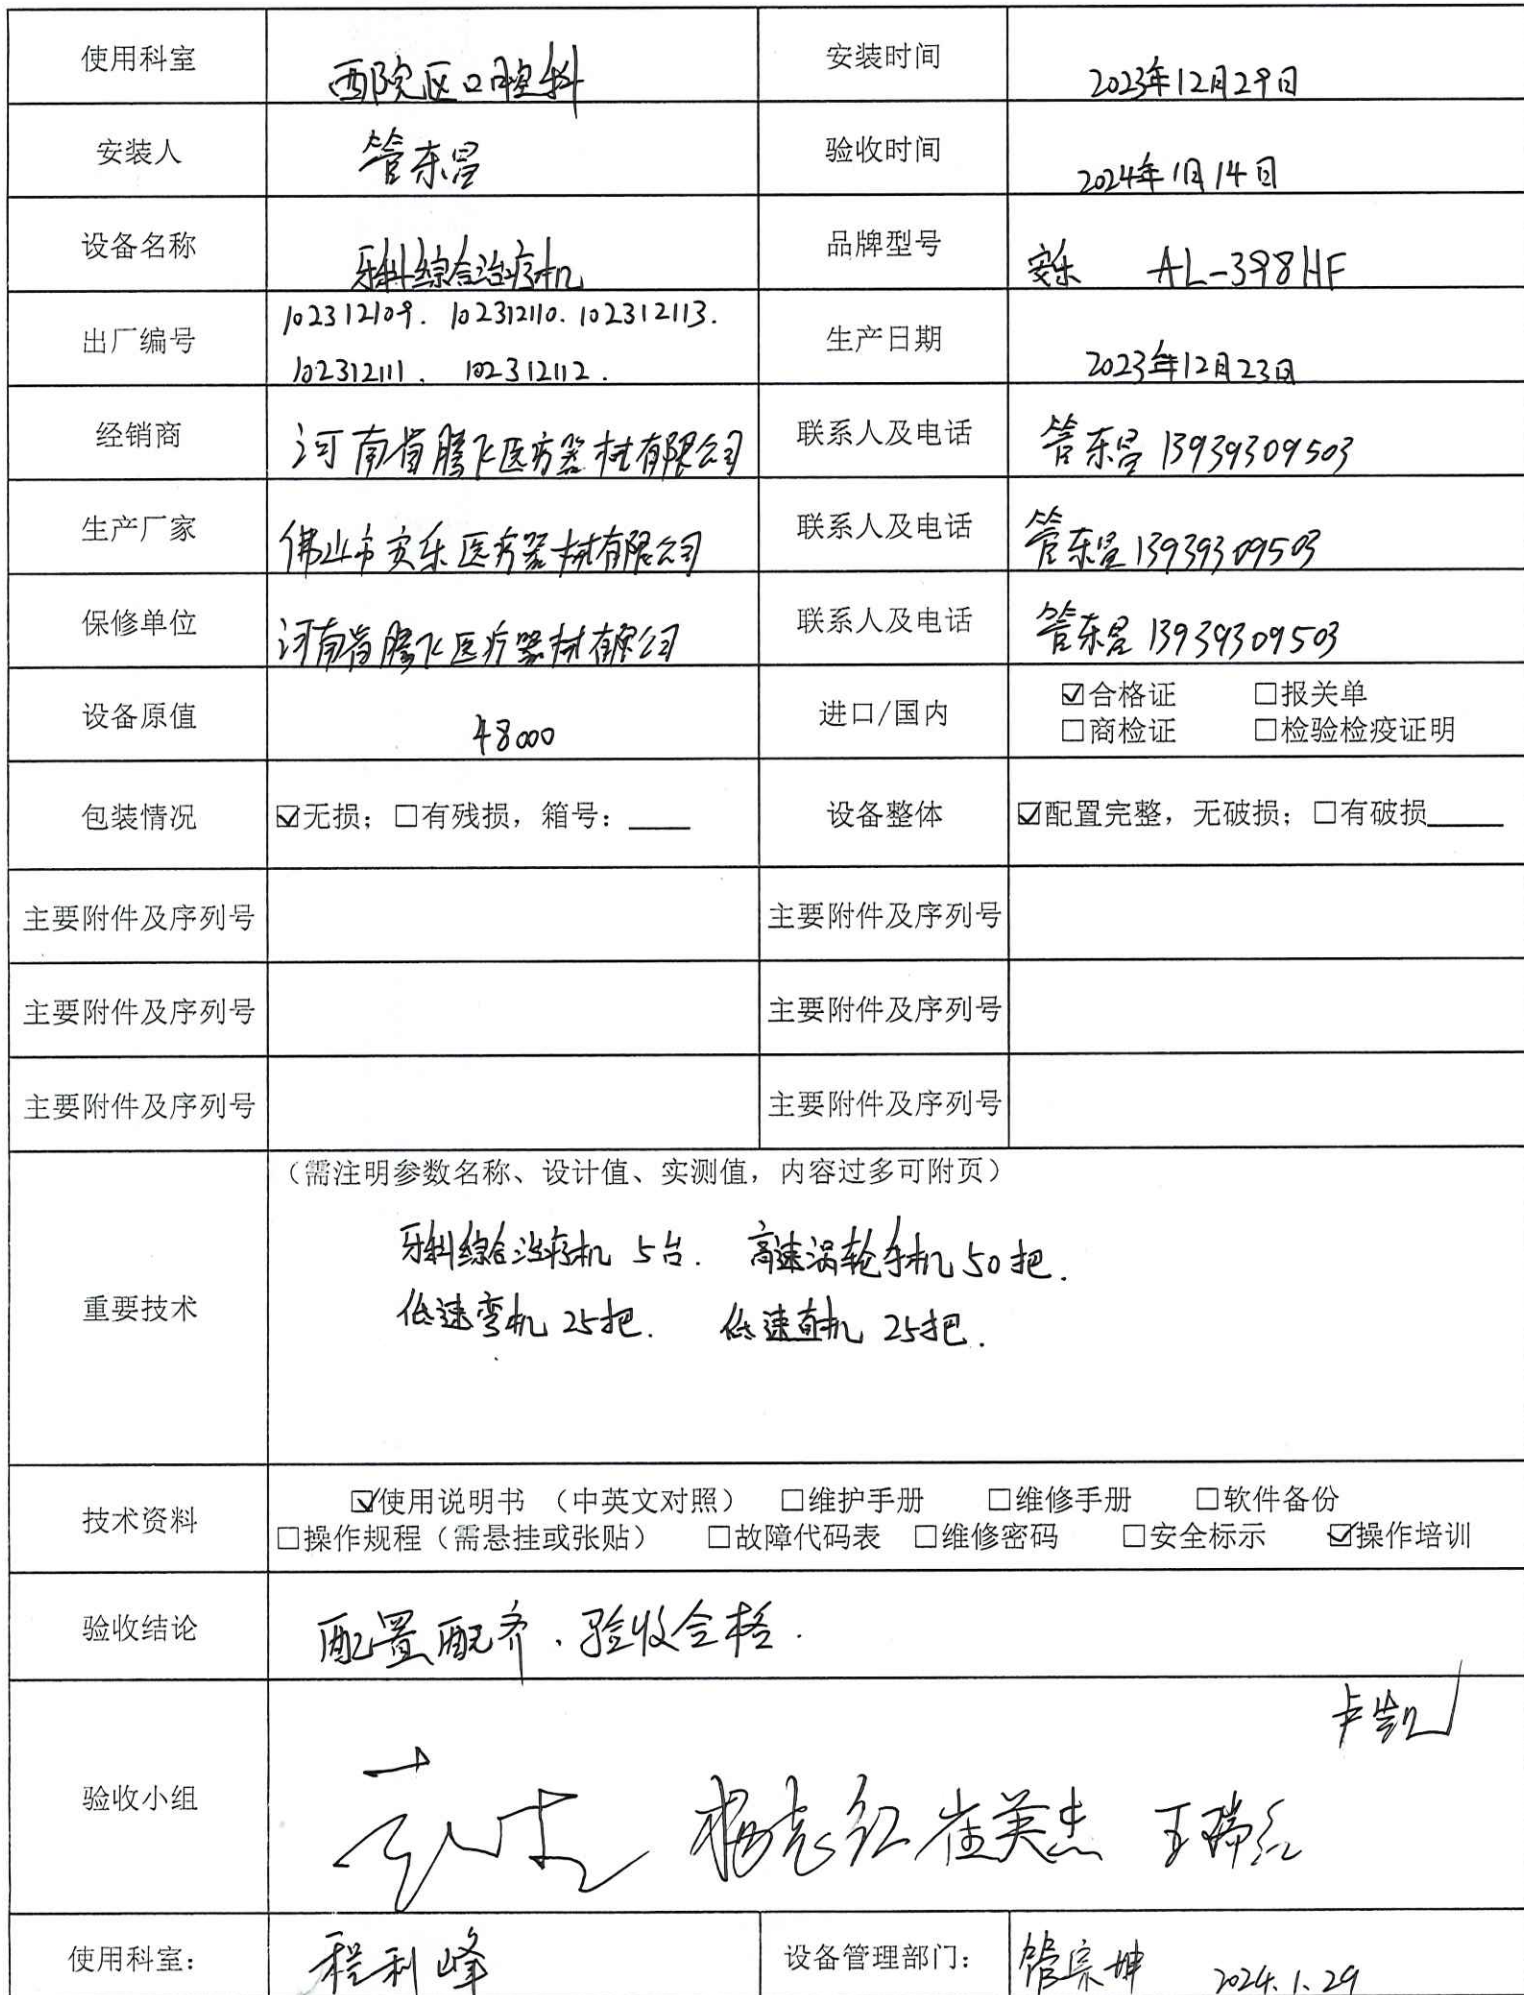 使用科室 西院区口腔科 安装时间 2023年12月29日
安装人 管东昱 验收时间 2024年1月14日
设备名称 牙科综合治疗机 品牌型号 安乐 AL-398HF
出厂编号 102312109. 102312110. 102312113. 生产日期 2023年12月23日
102312111. 102312112.
经销商 河南省腾飞医疗器材有限公司 联系人及电话 管东昱 13939309503
生产厂家 佛山市安乐医疗器材有限公司 联系人及电话 管东昱 13939309503
保修单位 河南省腾飞医疗器材有限公司 联系人及电话 管东昱 13939309503
设备原值 48000 进口/国内 ☑合格证 □报关单
□商检证 □检验检疫证明
包装情况 ☑无损；□有残损，箱号：____ 设备整体 ☑配置完整，无破损；□有破损____
主要附件及序列号 主要附件及序列号
主要附件及序列号 主要附件及序列号
主要附件及序列号 主要附件及序列号
重要技术 （需注明参数名称、设计值、实测值，内容过多可附页）
牙科综合治疗机 5台. 高速涡轮手机 50把.
低速弯机 25把. 低速直机 25把.
技术资料 ☑使用说明书 （中英文对照） □维护手册 □维修手册 □软件备份
□操作规程（需悬挂或张贴） □故障代码表 □维修密码 □安全标示 ☑操作培训
验收结论 配置配齐、验收合格.
卢凯
验收小组 崔英杰 王瑞红
使用科室： 程利峰 设备管理部门： 管宗坤 2024.1.29